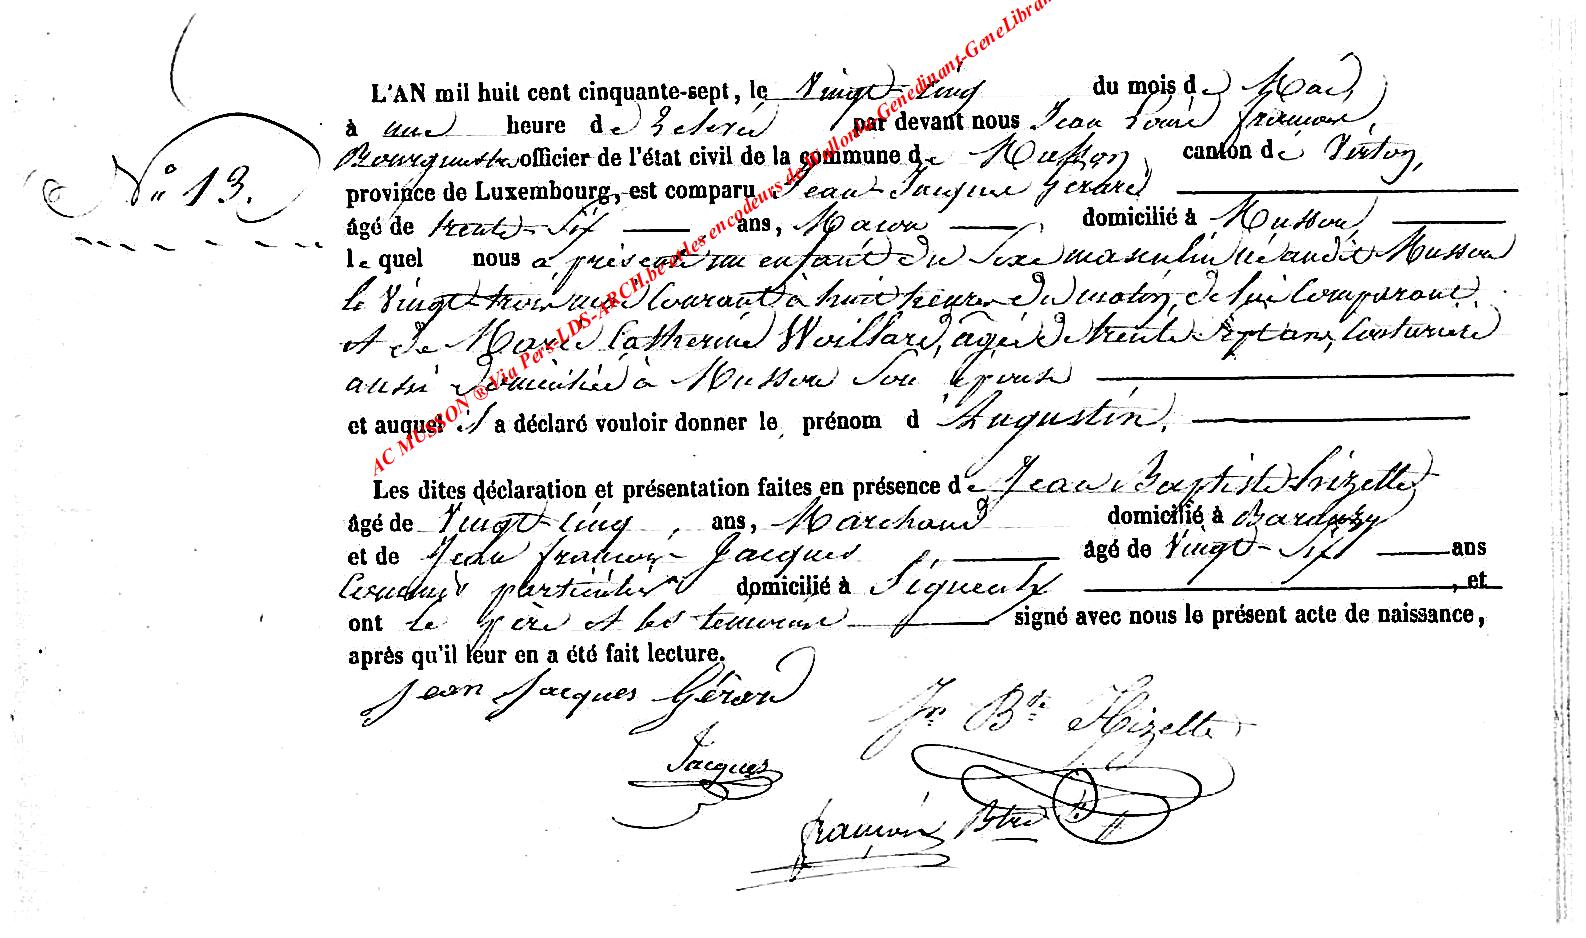 L'AN mil huit cent cinquante-sept, le Vingt-Cinq du mois de Mai,
à une heure de relevée par devant nous Jean Louis François,
Bourgmestre officier de l'état civil de la commune de Musson, canton de Virton,
N° 13.
province de Luxembourg, est comparu Jean-Jacques Gérard
âgé de trente-Six ans, Maçon, domicilié à Musson,
lequel nous a présenté un enfant du Sexe masculin né audit Musson
le Vingt-trois mai Courant à huit heures du matin, de lui Comparant
et de Marie Catherine Woillard, âgée de trente Sept ans, Couturière
aussi domiciliée à Musson Son épouse
et auquel il a déclaré vouloir donner le prénom d'Augustin.
Les dites déclaration et présentation faites en présence de Jean Baptiste Hizette
âgé de Vingt-Cinq, ans, Marchand domicilié à Baranzy
et de Jean François Jacques, âgé de Vingt-Six ans
particulier domicilié à Signeulx, et
ont le père et les témoins signé avec nous le présent acte de naissance,
après qu'il leur en a été fait lecture.
Jean Jacques Gérard
Jn Bte Hizette
Jacques
françois Btre
AC MUSSON ® Via Pers-LDS-ARCH.be et les encodeurs de Wallonia-Genedinant-GeneLibran